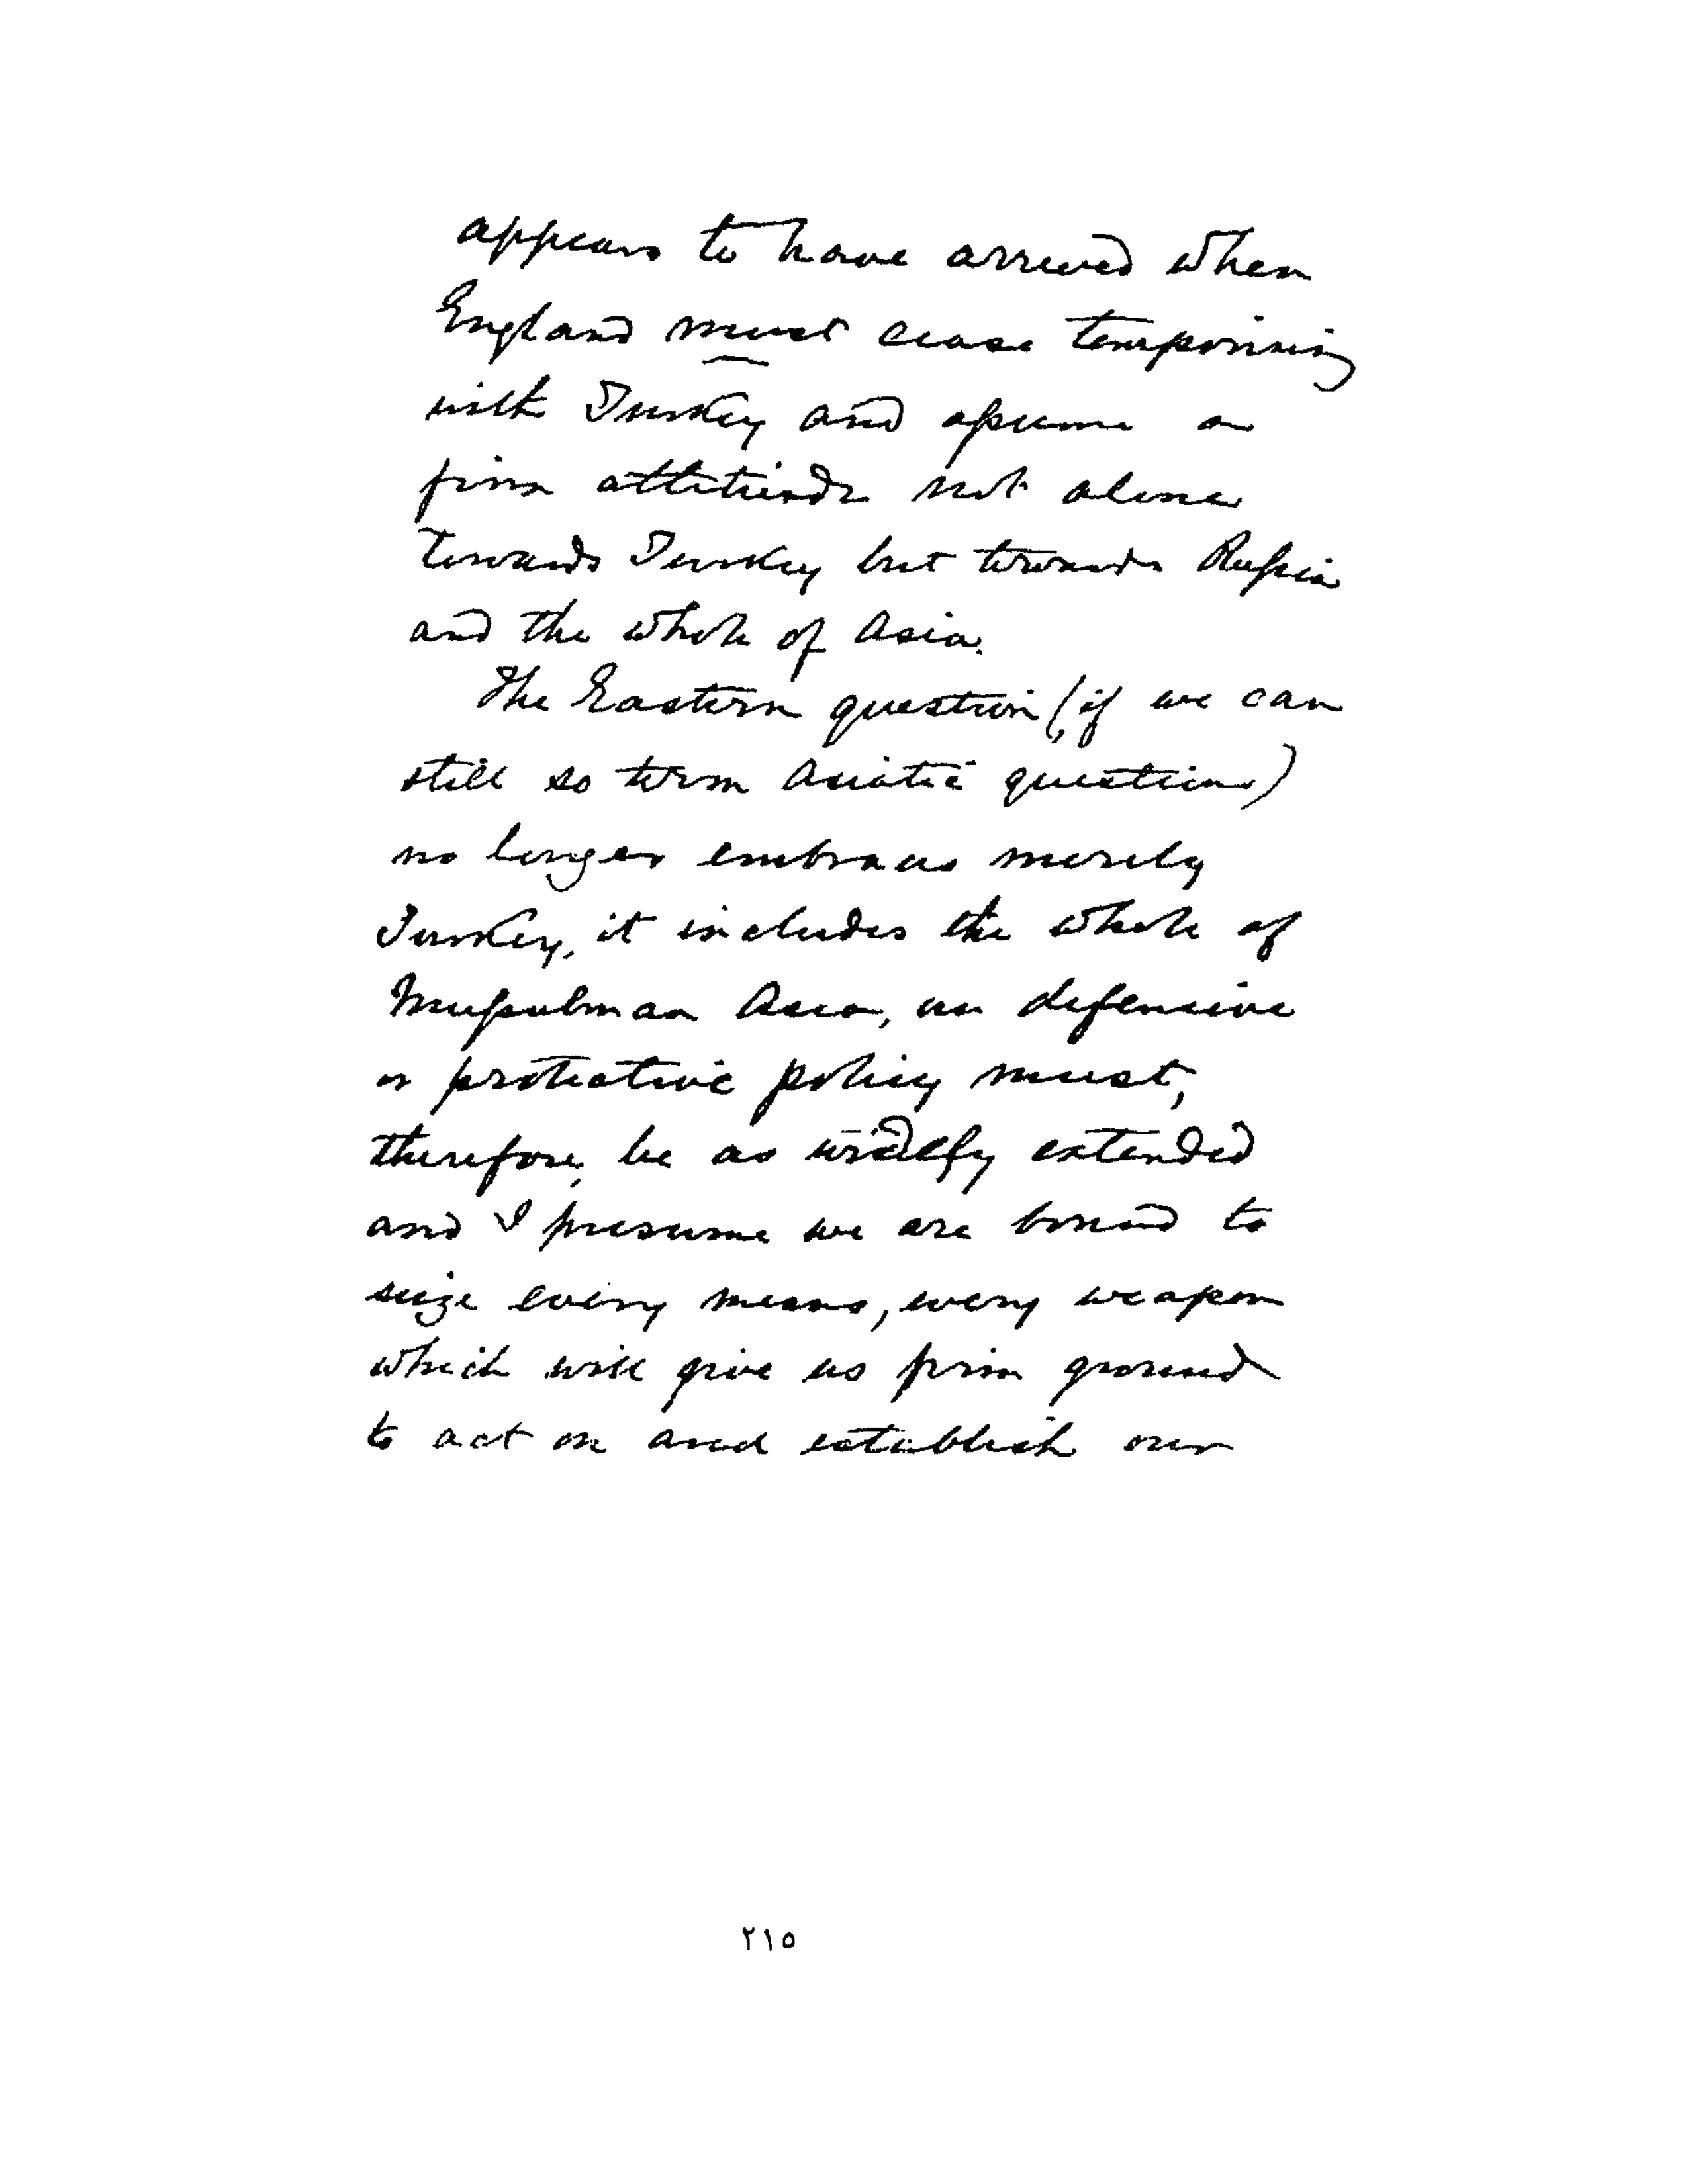 appears to have arrived when
England must cease temporising
with Turkey and assume a
firm attitude not alone
towards Turkey but towards Russia
and the whole of Asia.
The Eastern question (if we can
still so term Asiatic questions)
no longer embraces merely
Turkey, it includes the whole of
Mussulman Asia, our defensive
or protective policy must,
therefore, be as widely extended
and I presume we are bound to
seize every means, every weapon
which will give us firm ground
to act on and establish our
٢١٥